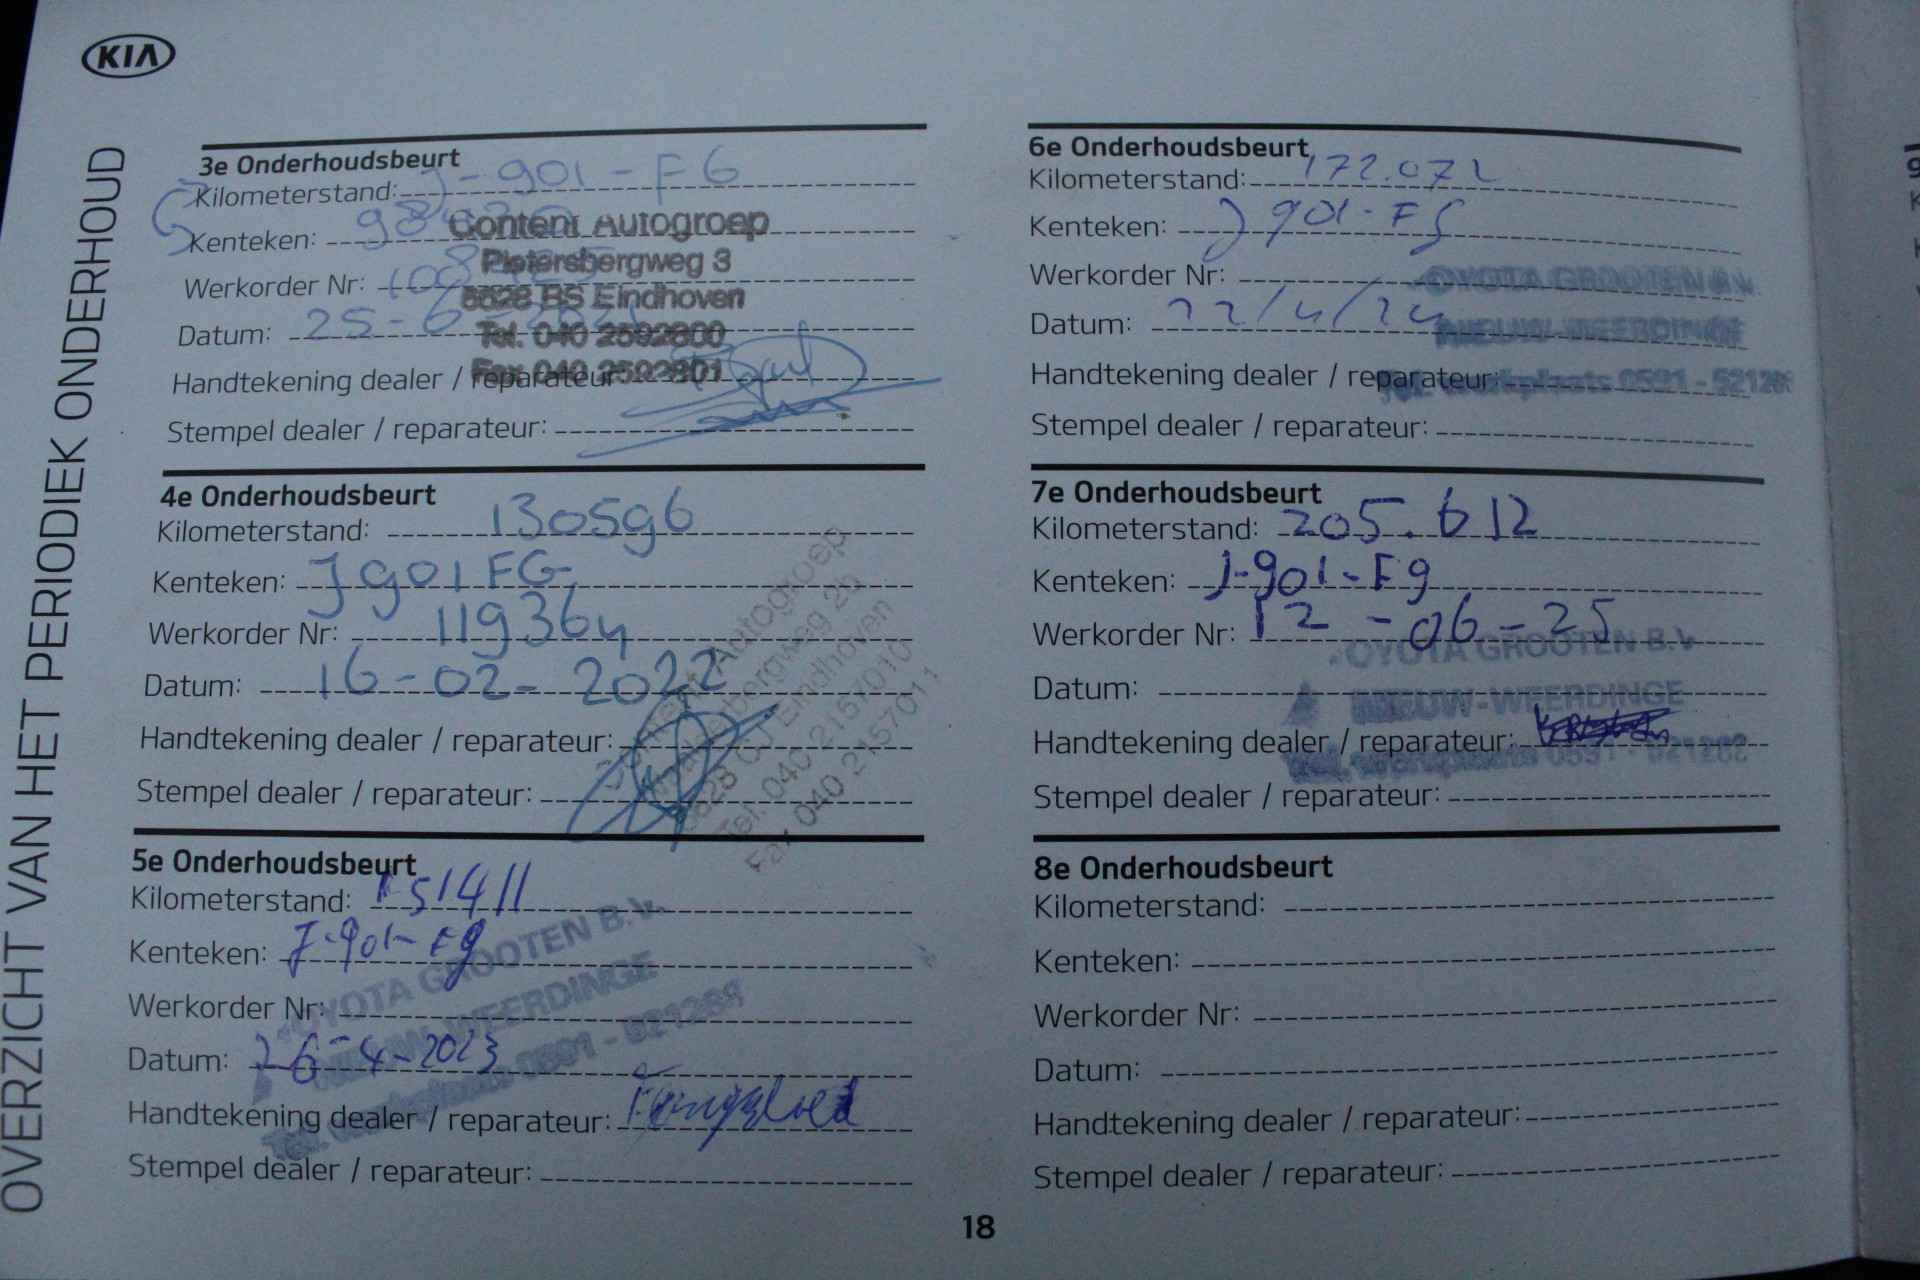 KIA
OVERZICHT VAN HET PERIODIEK ONDERHOUD
3e Onderhoudsbeurt
Kilometerstand: J-901-FG
Kenteken: 98
Content Autogroep
Pietersbergweg 3
Werkorder Nr:
5628 BS Eindhoven
Datum: 25-6-2021
Tel. 040 2592800
Handtekening dealer / reparateur:
Fax 040 2592801
Stempel dealer / reparateur:
4e Onderhoudsbeurt
Kilometerstand: 130596
Kenteken: J901FG
Werkorder Nr: 119364
Datum: 16-02-2022
Handtekening dealer / reparateur:
Stempel dealer / reparateur:
Content Autogroep
5628 CJ Eindhoven
Tel. 040 2157010
Fax 040 2157011
5e Onderhoudsbeurt
Kilometerstand: 151411
Kenteken: J-901-FG
Werkorder Nr:
Datum: 26-4-2023
Handtekening dealer / reparateur:
Stempel dealer / reparateur:
TOYOTA GROOTEN B.V.
NIEUW-WEERDINGE
Tel. werkplaats 0591 - 521262
6e Onderhoudsbeurt
Kilometerstand: 172.072
Kenteken: J901-FG
Werkorder Nr:
Datum: 22/4/24
Handtekening dealer / reparateur:
Stempel dealer / reparateur:
TOYOTA GROOTEN B.V.
NIEUW-WEERDINGE
Tel. werkplaats 0591 - 521262
7e Onderhoudsbeurt
Kilometerstand: 205.612
Kenteken: J-901-Fg
Werkorder Nr: 12-06-25
Datum:
Handtekening dealer / reparateur:
Stempel dealer / reparateur:
TOYOTA GROOTEN B.V.
NIEUW-WEERDINGE
Tel. werkplaats 0591 - 521262
8e Onderhoudsbeurt
Kilometerstand:
Kenteken:
Werkorder Nr:
Datum:
Handtekening dealer / reparateur:
Stempel dealer / reparateur:
18